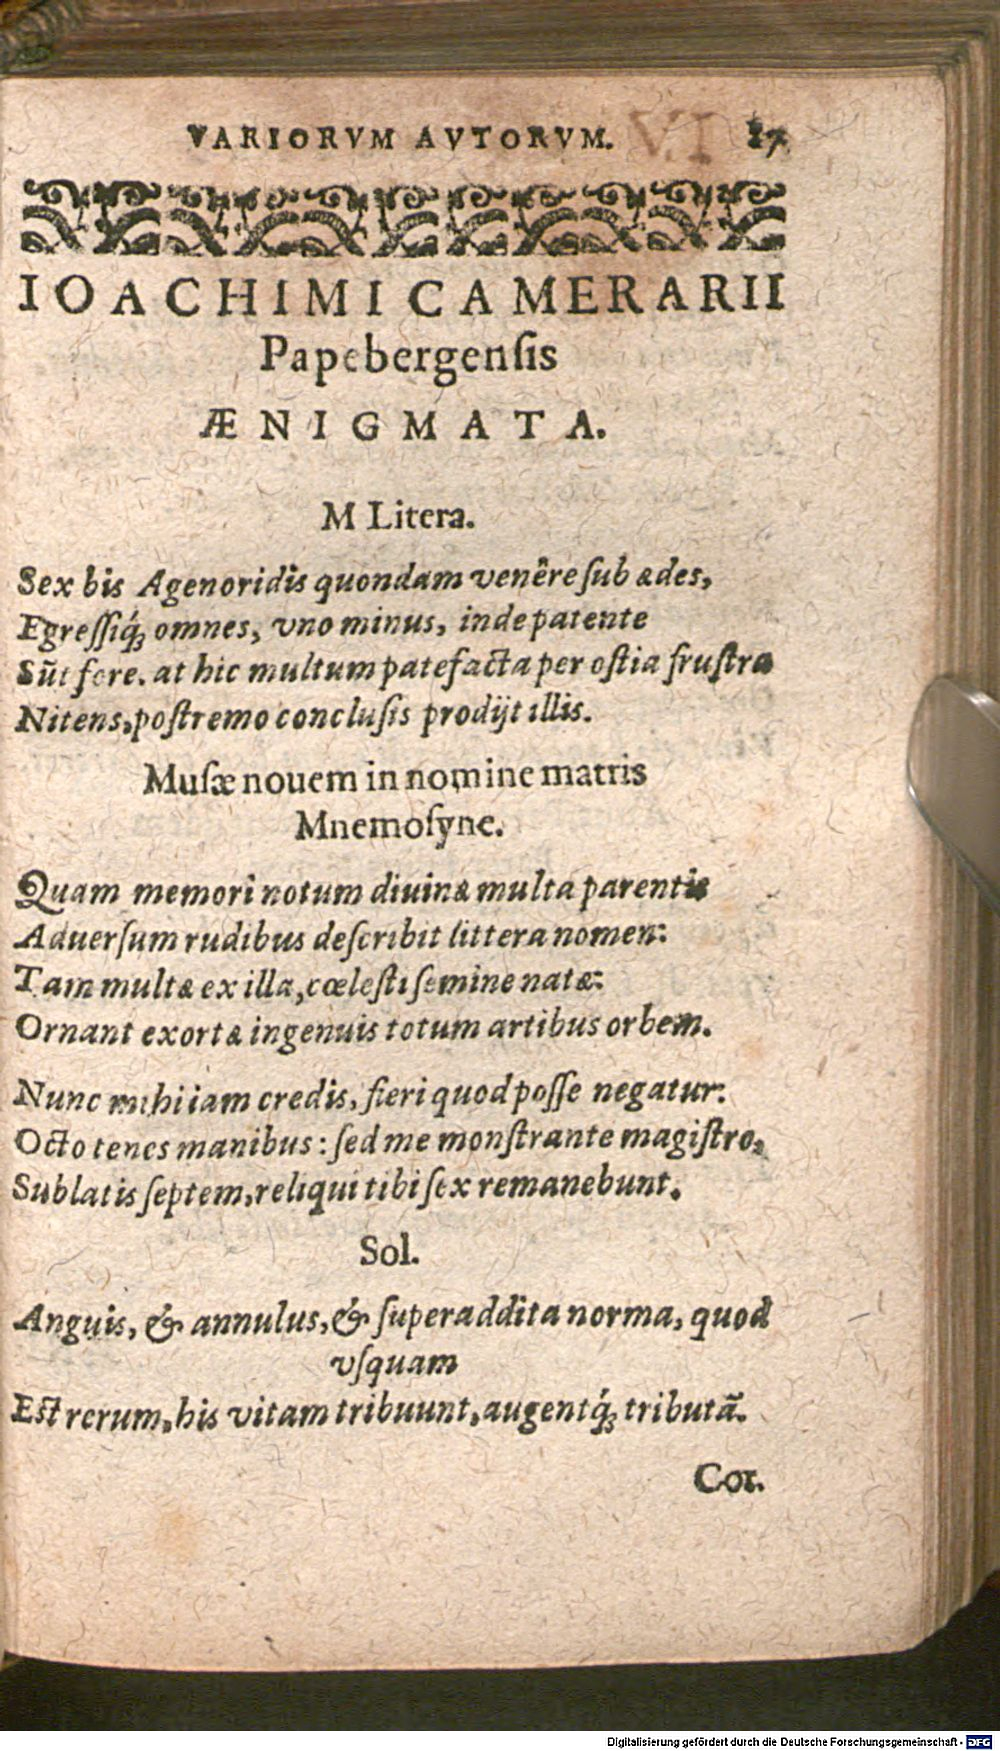 VARIORVM AVTORVM. 17
IOACHIMI CAMERARII
Papebergensis
ÆNIGMATA.
M Litera.
Sex bis Agenoridis quondam venêre sub ædes,
Egressiq́ꝫ omnes, vno minus, inde patente
Sũt fore. at hic multum patefacta per ostia frustra
Nitens, postremo conclusis prodijt illis.
Musæ nouem in nomine matris
Mnemosyne.
Quam memori notum diuinæ multa parentis
Aduersum rudibus describit littera nomen:
Tam multæ ex illa, cœlesti semine natæ:
Ornant exortæ ingenuis totum artibus orbem.
Nunc mihi iam credis, fieri quod posse negatur:
Octo tenes manibus: sed me monstrante magistro,
Sublatis septem, reliqui tibi sex remanebunt.
Sol.
Anguis, & annulus, & superaddita norma, quod
vsquam
Est rerum, his vitam tribuunt, augentq́ꝫ tributã.
Cor.
Digitalisierung gefördert durch die Deutsche Forschungsgemeinschaft - DFG